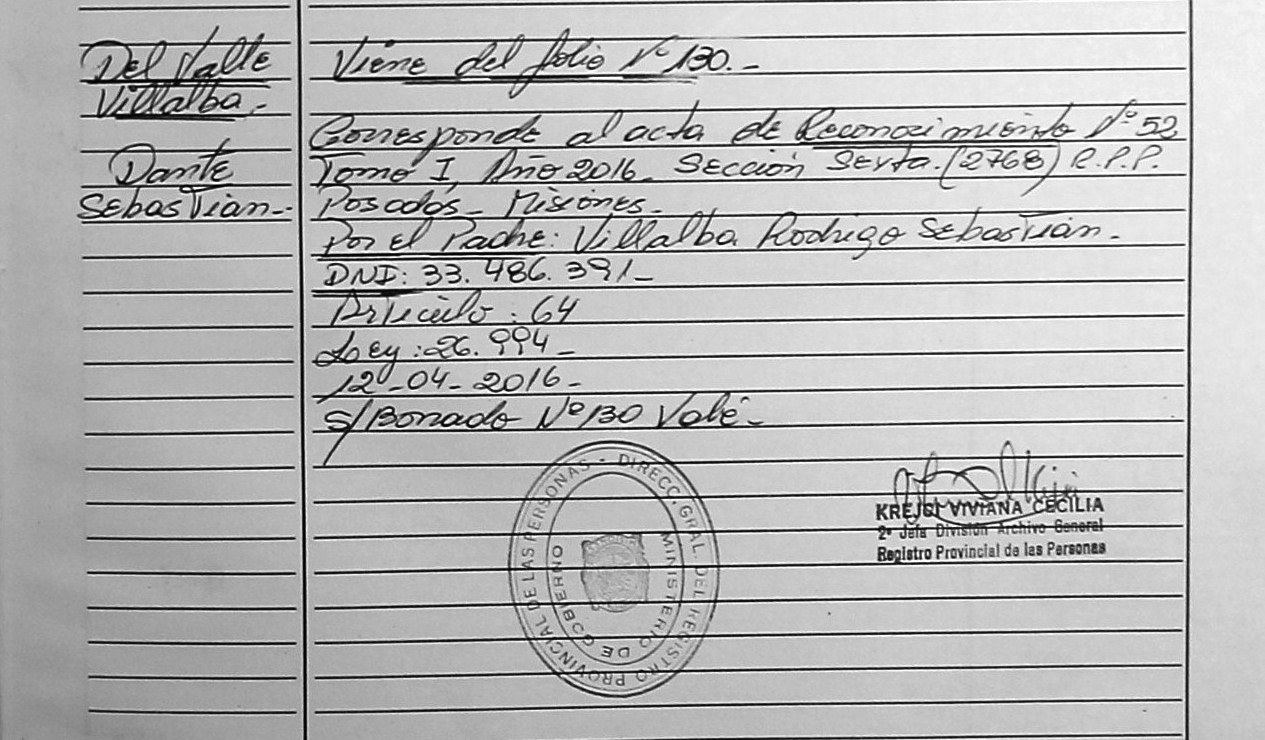 Del Valle
Villalba.
Dante
Sebastian.-
Viene del folio Nº 130.-
Corresponde al acta de Reconocimiento Nº 52
Tomo I, Año 2016_ Sección Sexta. (2768) R.P.P.
Posadas_ Misiones_
Por el Padre: Villalba Rodrigo Sebastian.
DNI: 33.486.391_
Artículo: 64
Ley: 26.994_
12-04-2016_
S/Borrado Nº 130 Vale_
DIRECC. GRAL. DEL REGISTRO PROVINCIAL DE LAS PERSONAS -
MINISTERIO DE GOBIERNO
KREJCI VIVIANA CECILIA
2º Jefa División Archivo General
Registro Provincial de las Personas